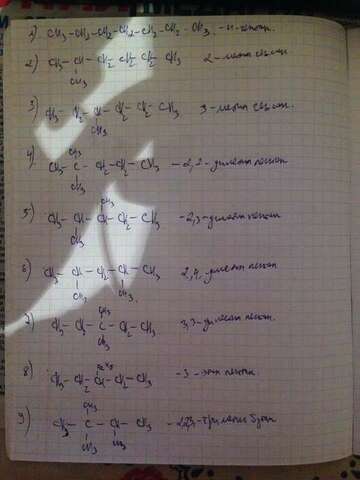 1) CH3 - CH2 - CH2 - CH2 - CH2 - CH2 - CH3 - н-гептан.
2) CH3 - CH - CH2 - CH2 - CH2 - CH3 2 - метил гексан
CH3
3) CH3 - CH2 - CH - CH2 - CH2 - CH3 3 - метил гексан.
CH3
CH3
4) CH3 - C - CH2 - CH2 - CH3 - 2,2 - диметил пентан
CH3
CH3
5) CH3 - CH - CH - CH2 - CH3 - 2,3 - диметил пентан
CH3
6) CH3 - CH - CH2 - CH - CH3 2,4, - диметил пентан
CH3 CH3
CH3
7) CH3 - CH2 - C - CH2 - CH3 3,3 - диметил пентан.
CH3
C2H5
8) CH3 - CH2 - CH - CH2 - CH3 - 3 - этил пентан.
CH3
9) CH3 - C - CH - CH3 - 2,2,3 - триметил бутан
CH3 CH3